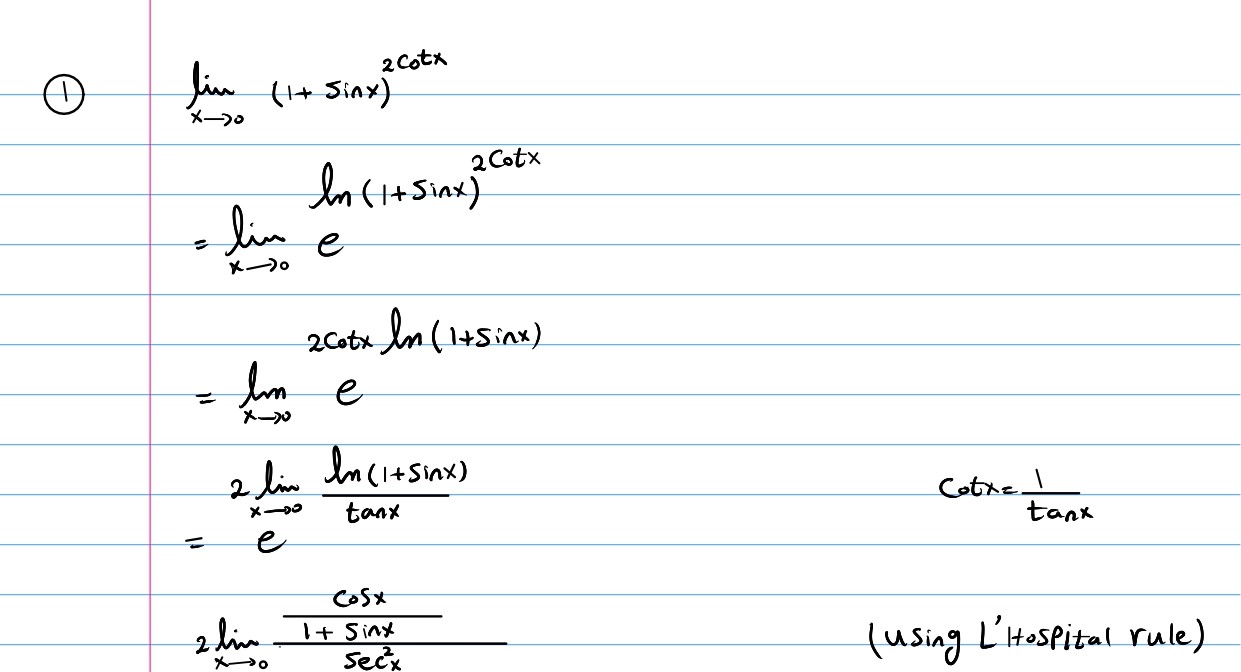 ① lim x→0 (1+ sinx)^2cotx
= lim x→0 e^ln(1+sinx)^2cotx
= lim x→0 e^2cotx ln(1+sinx)
= e^2 lim x→0 ln(1+sinx)/tanx cotx = 1/tanx
2 lim x→0 (cosx/(1+ sinx))/sec²x (using L'Hospital rule)